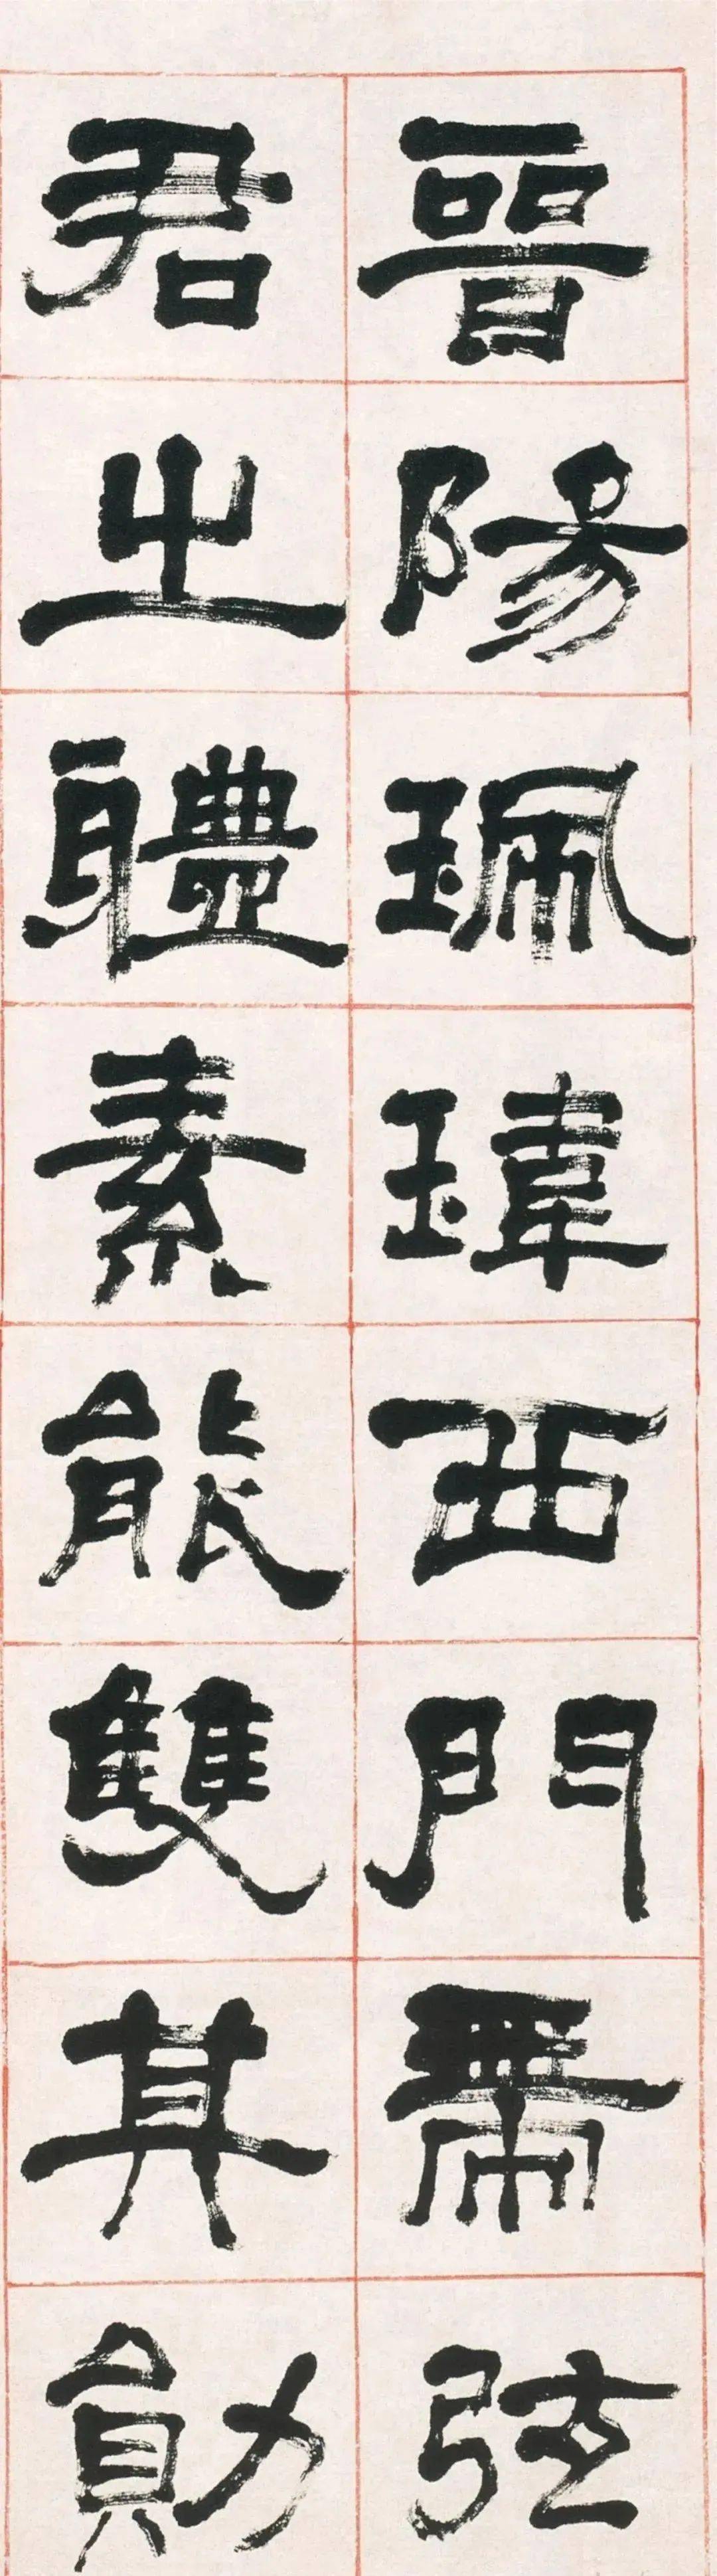 晉陽珮瑋西門帶弦
君之軆素能雙其勛